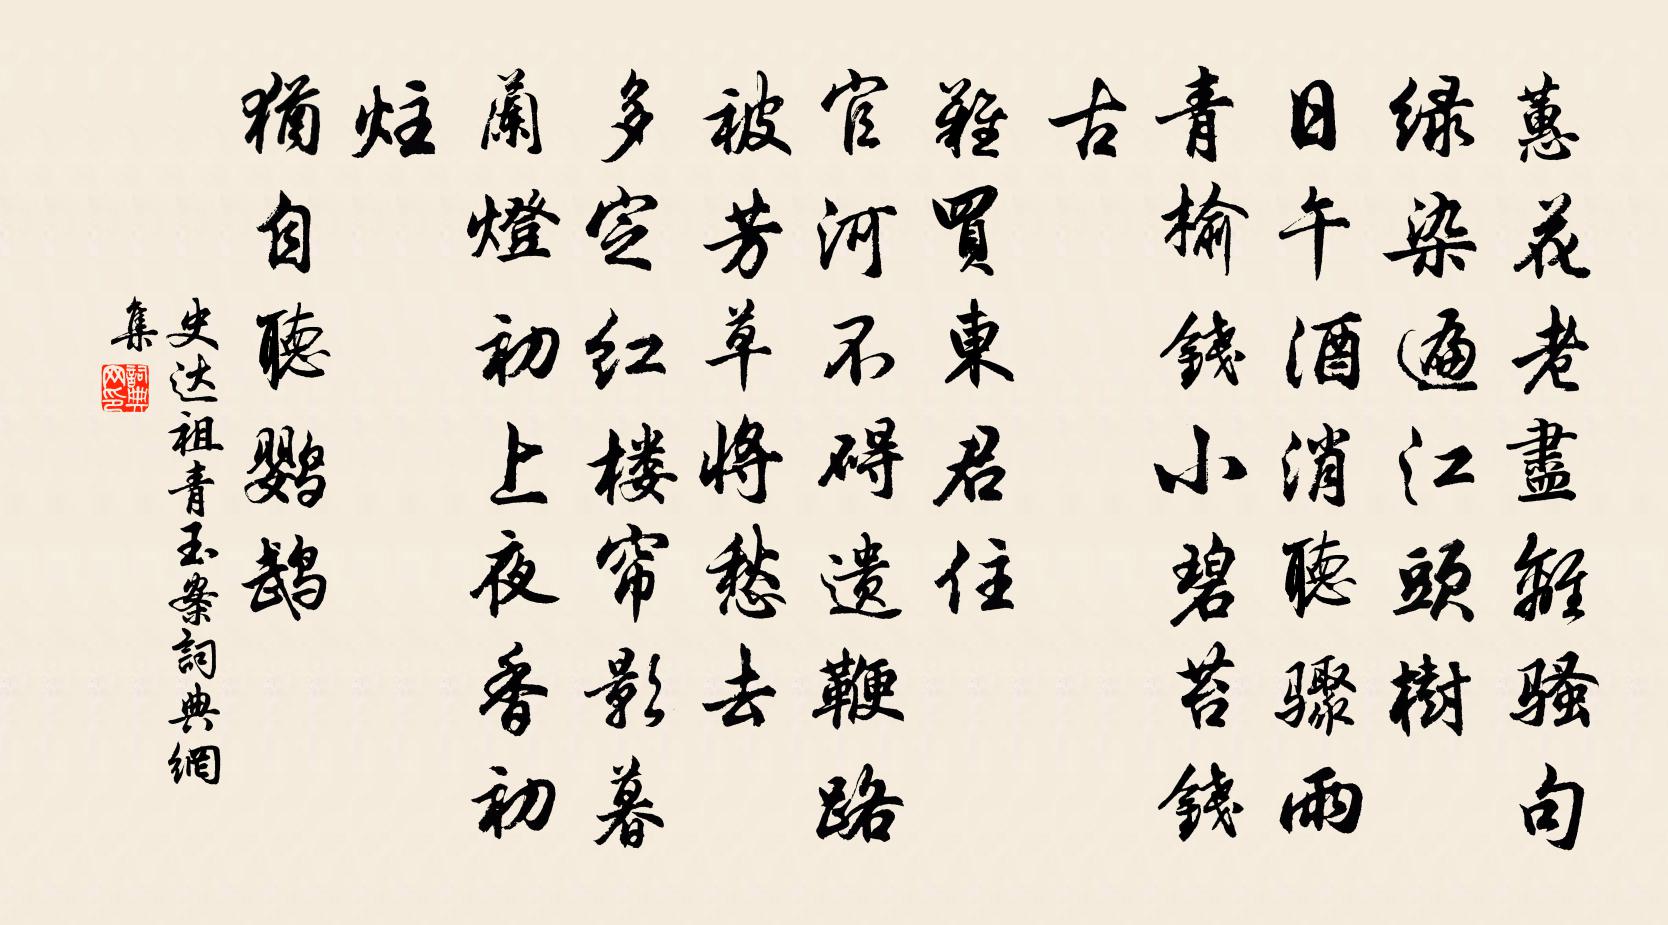 蕙花老盡離騷句
綠染遍江頭樹
日午酒消聽驟雨
青榆錢小碧苔錢
古
難買東君住
官河不碍遗鞭路
被芳草将愁去
多定红楼帘影暮
蘭燈初上夜香初
炷
猶自聽鹦鵡
史达祖青玉案詞典網
集
詞典网印